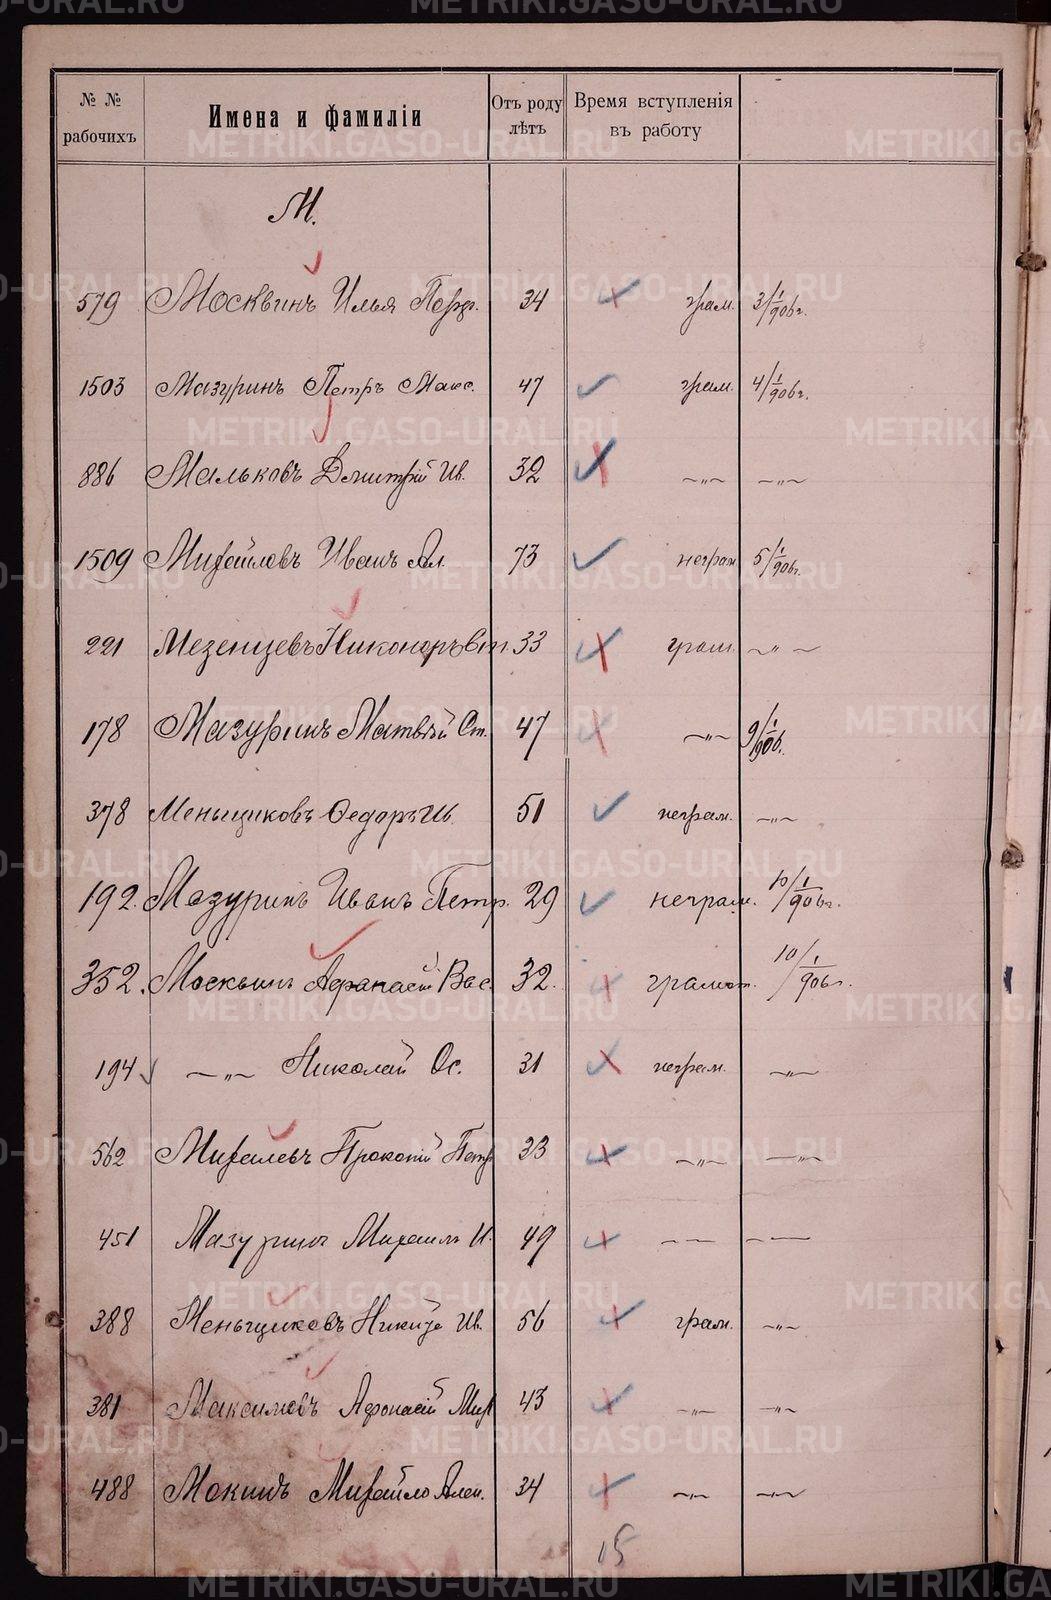 № № рабочихъ Имена и фамиліи Отъ роду лѣтъ Время вступленія въ работу
М.
579 Москвинъ Илья Перф. 34 грам. 3/1 906г.
1503 Мазуринъ Петръ Макс. 47 грам. 4/1 906г.
886 Мальковъ Дмитрій Ив. 32 —„— —„—
1509 Михайловъ Иванъ Ал. 73 неграм. 5/1 906г.
221 Мезенцевъ Никоноръ Ст. 33 грам. —„—
178 Мазуринъ Матвѣй Ст. 47 —„— 9/1 906.
378 Меньщиковъ Ѳедоръ Ив. 51 неграм. —„—
192. Мазуринъ Иванъ Петр. 29 неграм. 10/1 906г.
352. Москвинъ Афанасій Вас. 32. грамот. 10/1 906г.
194 —„— Николай Ос. 31 неграм. —„—
562 Михалевъ Прокопій Петр 33 —„— —„—
451 Мазуринъ Михаилъ И. 49 — — — —
388 Меньщиковъ Никита Ив. 56 грам. —„—
381 Максимовъ Афонасій Мих 43 —„— —„—
488 Мокинъ Михайло Алек. 34 —„— —„—
15
METRIKI.GASO-URAL.RU